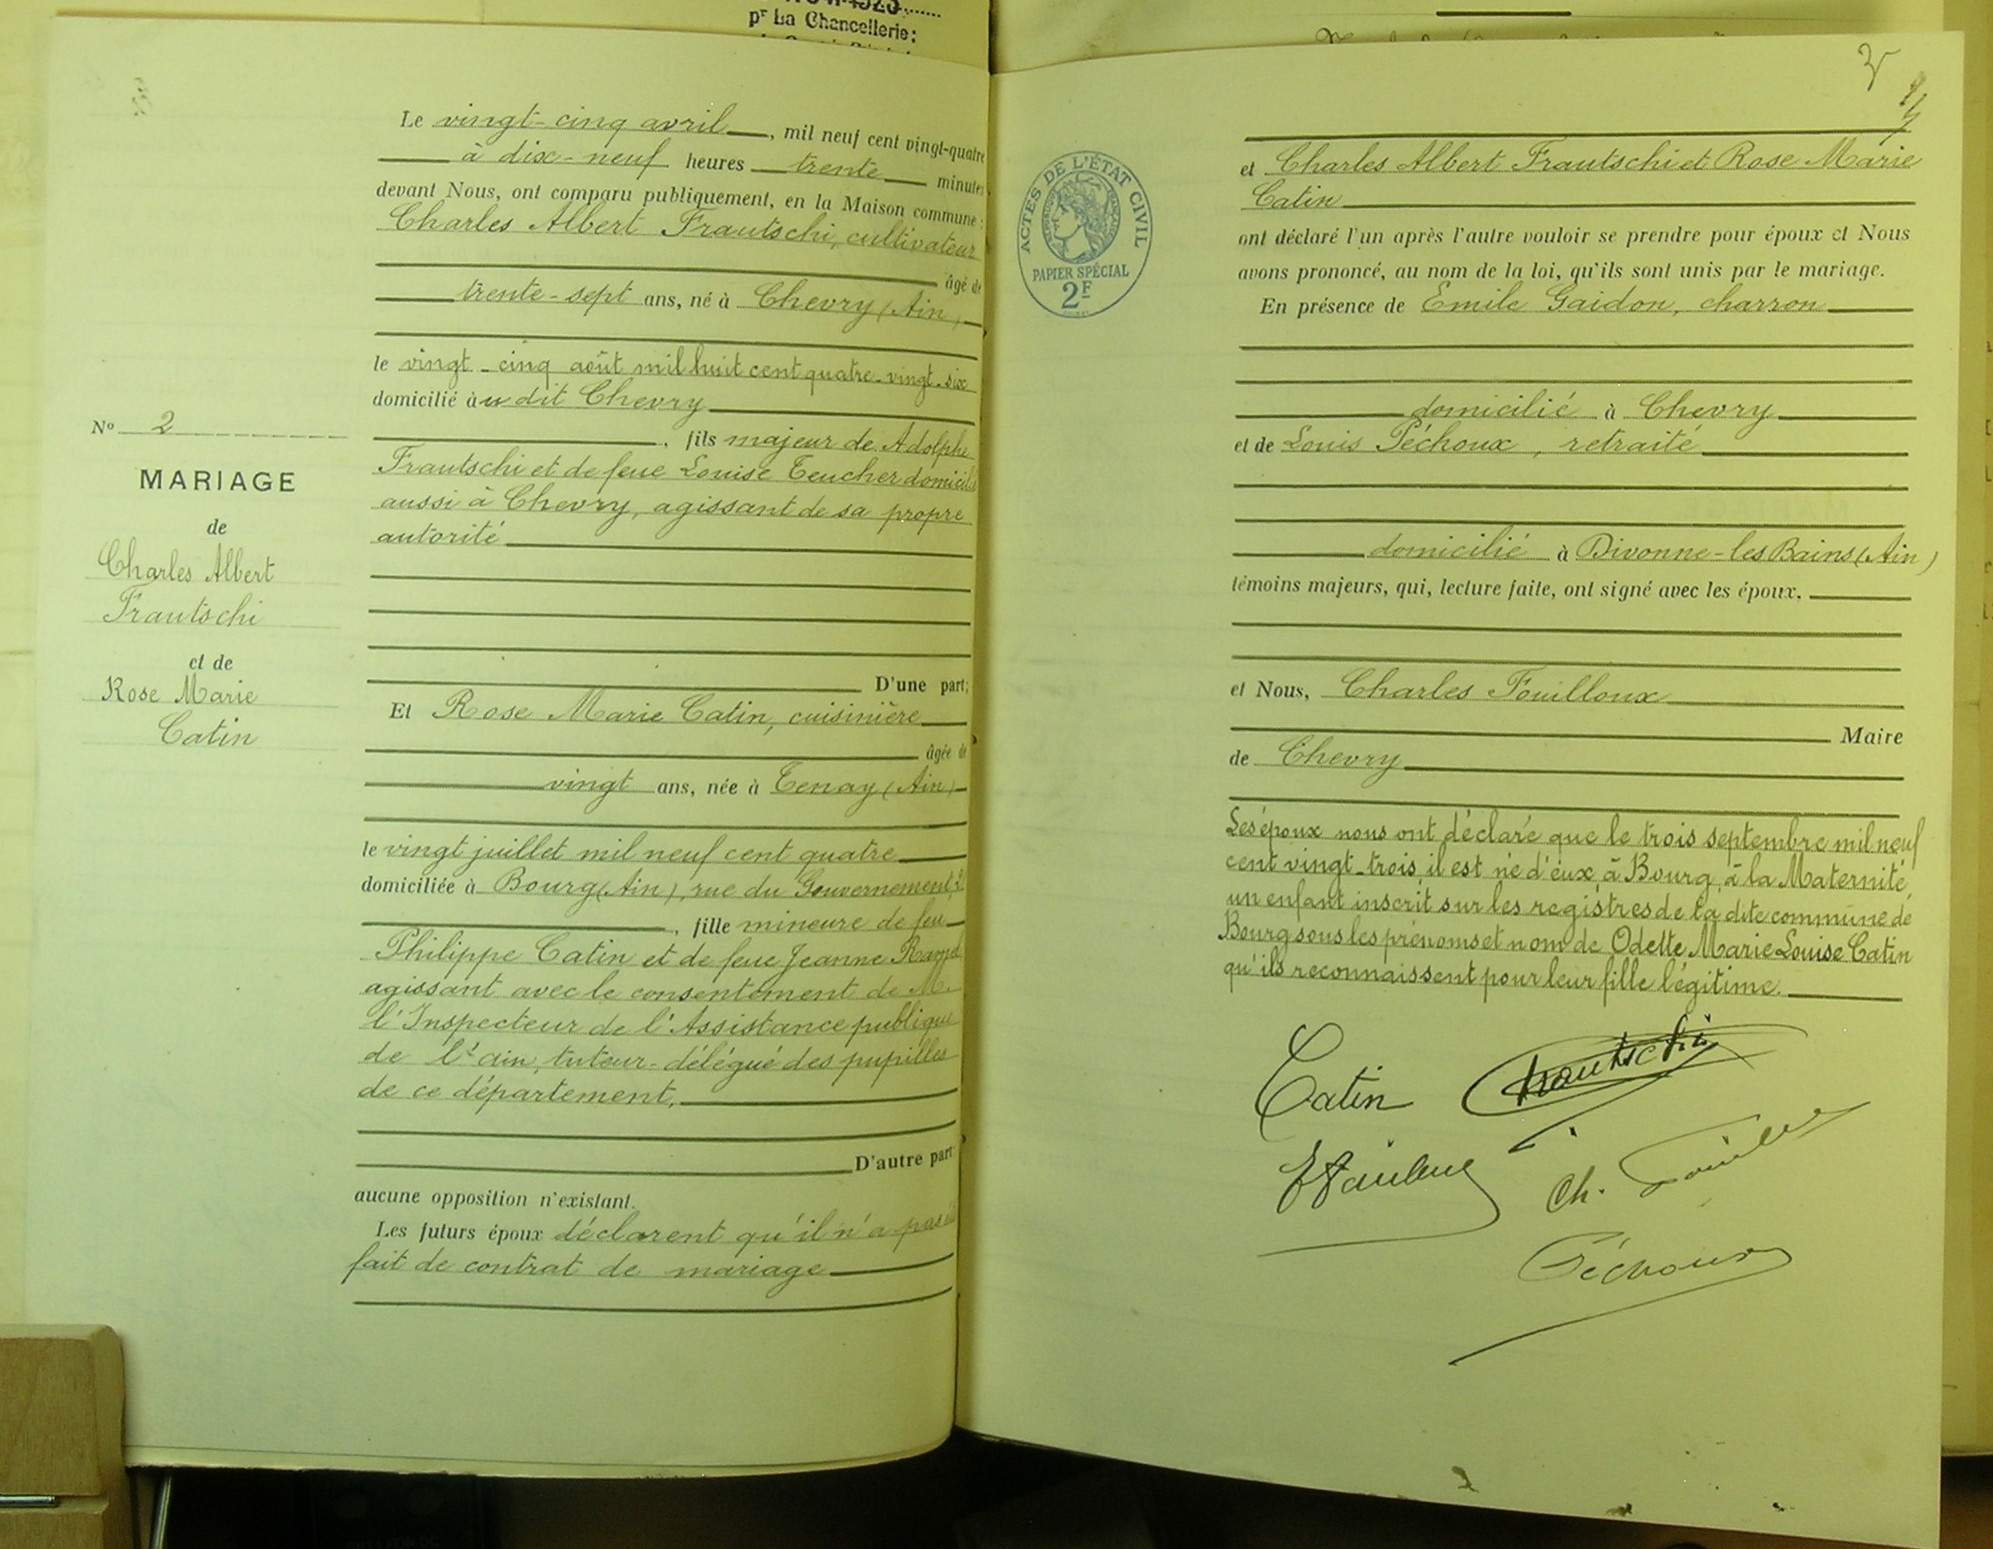 pr La Chancellerie:
Le vingt-cinq avril, mil neuf cent vingt-quatre
à dix-neuf heures trente minutes
devant Nous, ont comparu publiquement, en la Maison commune:
Charles Albert Frautschi, cultivateur
âgé de
trente-sept ans, né à Chevry (Ain)
le vingt-cinq août mil huit cent quatre-vingt-six
domicilié àu dit Chevry
, fils majeur de Adolphe
Frautschi et de feue Louise Teucher domicilié
aussi à Chevry, agissant de sa propre
autorité
D'une part;
Et Rose Marie Catin, cuisinière
âgée de
vingt ans, née à Tenay (Ain)
le vingt juillet mil neuf cent quatre
domiciliée à Bourg (Ain), rue du Gouvernement,
, fille mineure de feu
Philippe Catin et de feue Jeanne
agissant avec le consentement de M.
l'Inspecteur de l'Assistance publique
de l'ain, tuteur-délégué des pupilles
de ce département,
D'autre part
aucune opposition n'existant.
Les futurs époux déclarent qu'il n'a pas été
fait de contrat de mariage
No 2
MARIAGE
de
Charles Albert
Frautschi
et de
Rose Marie
Catin
ACTES DE L'ÉTAT CIVIL
PAPIER SPÉCIAL
2F
et Charles Albert Frautschi et Rose Marie
Catin
ont déclaré l'un après l'autre vouloir se prendre pour époux et Nous
avons prononcé, au nom de la loi, qu'ils sont unis par le mariage.
En présence de Emile Gaidon, charron
domicilié à Chevry
et de Louis Péchoux, retraité
domicilié à Divonne-les Bains (Ain)
témoins majeurs, qui, lecture faite, ont signé avec les époux,
et Nous, Charles Fouilloux
Maire
de Chevry
Les époux nous ont déclaré que le trois septembre mil neuf
cent vingt-trois, il est né d'eux, à Bourg, à la Maternité,
un enfant inscrit sur les registres de la dite commune de
Bourg sous les prénoms et nom de Odette Marie Louise Catin
qu'ils reconnaissent pour leur fille légitime.
Catin Frautschi
Ch.
Péchoux